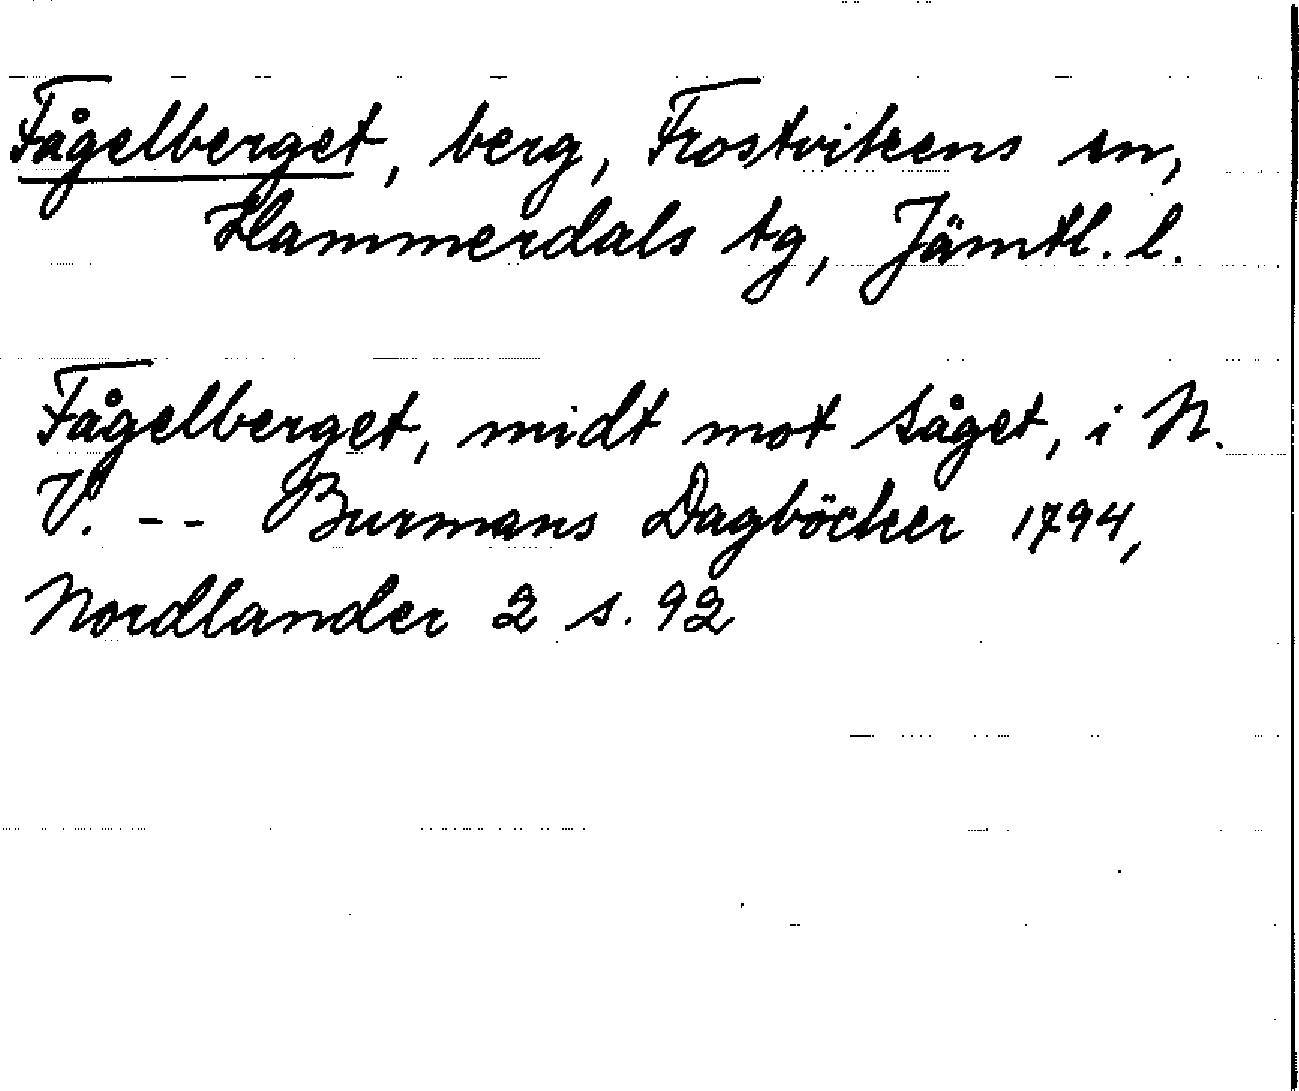 Fågelberget, berg, Frostvikens sn,
Hammerdals tg, Jämtl. l.
Fågelberget, midt mot tåget, i N.
V. -- Burmans Dagböcker 1794,
Nordlander 2 s. 92